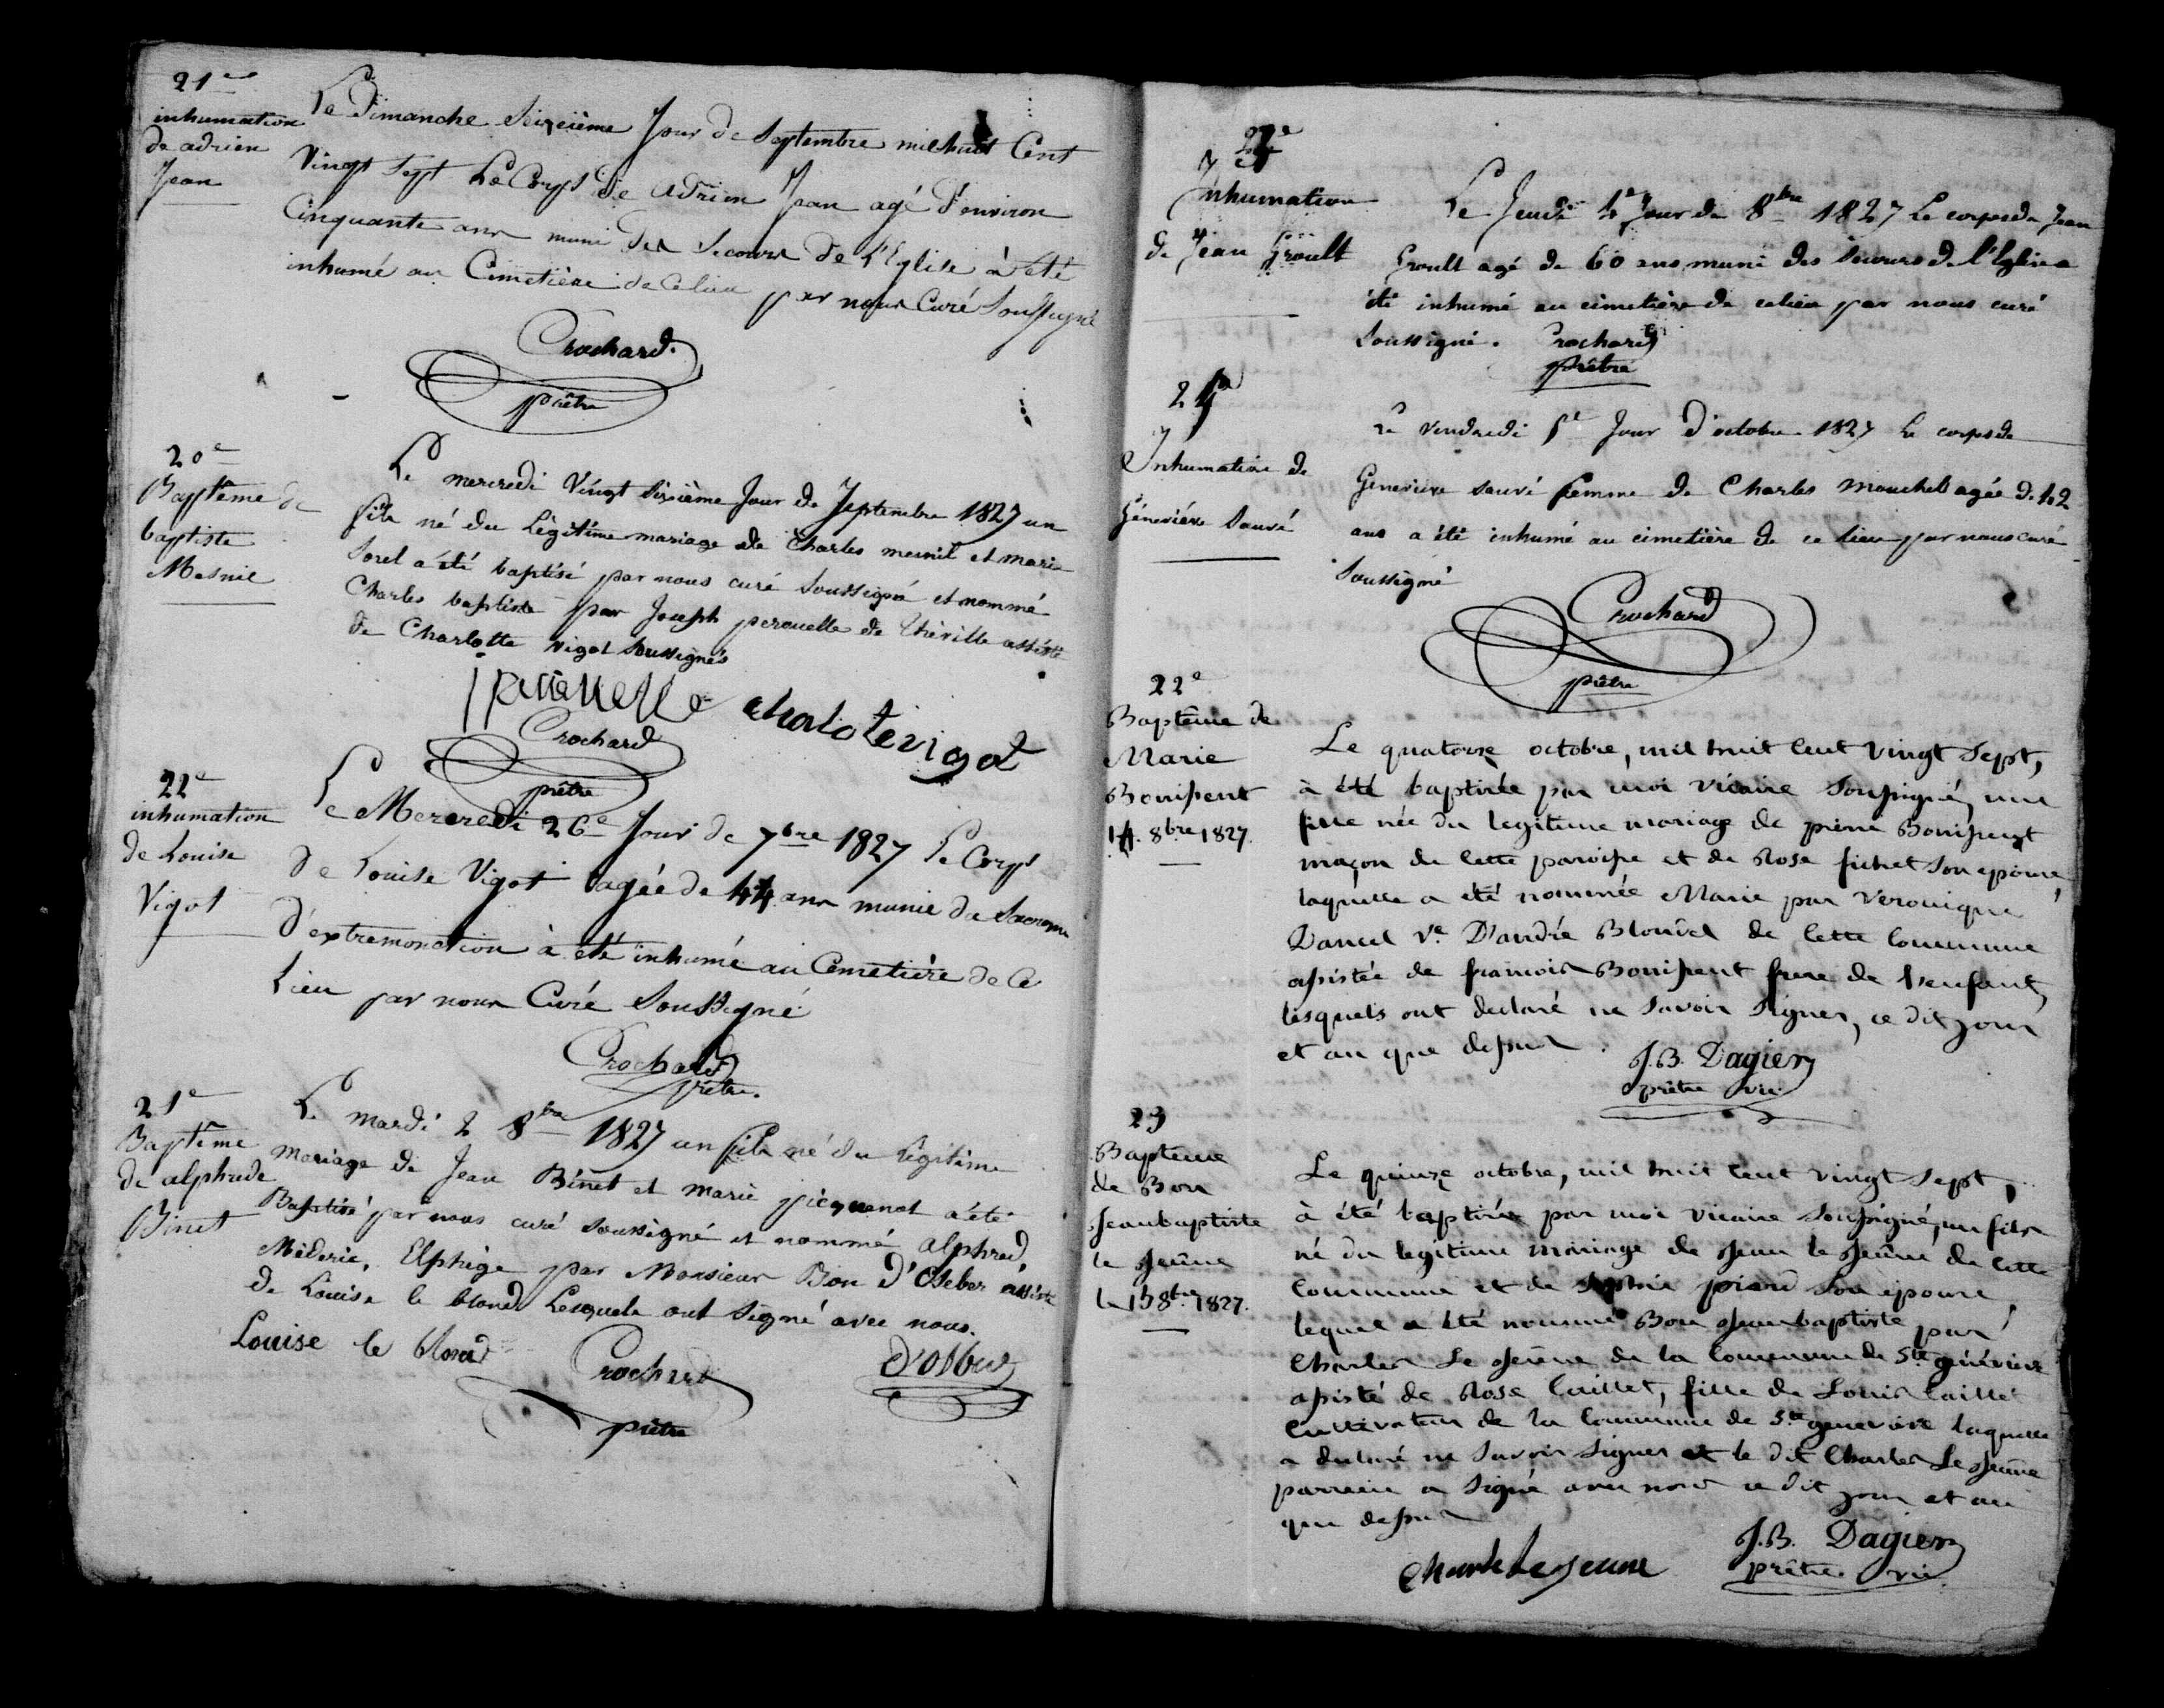 21e
inhumation
de adrien
Jean
Le Dimanche Seizeième Jour de Septembre mil huit Cent
Vingt Sept Le Corps de Adrien Jean agé d'environ
Cinquante ans muni des Secours de L'Eglise à été
inhumé au Cimetière de Ce lieu par nous Curé Soussigné
Crochard
prêtre
20e
Baptême de
baptiste
Mesnil
Le mercredi Vingt Sixième Jour de Septembre 1827 un
fils né du Légitime mariage de Charles mesnil et marie
Sorel a été baptisé par nous curé Soussigné et nommé
Charles baptiste par Joseph perouelle de théville assisté
de Charlotte vigot Soussignés
charlote vigot
Crochard
prêtre
22e
inhumation
de Louise
Vigot
Le Mercredi 26e Jour de 7bre 1827 Le Corps
de Louise Vigot agée de 44 ans munie du
d'extremonction à été inhumé au Cemetière de Ce
Lieu par nous Curé Soussigné
Crochard
prêtre.
21e
Baptême
de alphrede
Binet
Le mardi 2 8bre 1827 un fils né du Légitime
mariage de Jean Binet et marie picquenot a été
Baptisé par nous curé soussigné et nommé alphred,
Méderic, Elphège par Monsieur Bon d'Osber assisté
de Louise le blond Lesquels ont signé avec nous.
Louise le blond
Crochard
prêtre
23e
Inhumation
de Jean Groult
Le Jeudi 4e Jour de 8bre 1827 Le corps de Jean
Groult agé de 60 ans muni des Secours de l'Eglise a
été inhumé au cimetière de ce lieu par nous curé
Soussigné. Crochard
prêtre
24
Inhumation de
Géneviéve Sauvé
Le vendredi 5e Jour d'octobre 1827 Le corps de
Genevieve sauvé femme de Charles mouchel agée de 42
ans a été inhumé au cimetière de ce lieu par nous curé
Soussigné
Crochard
prêtre
22e
Baptême de
Marie
Bonissent
14. 8bre 1827.
Le quatorze octobre, mil huit cent vingt sept,
à été baptisée par moi vicaire soussigné, une
fille née du legitime mariage de pierre Bonissent
maçon de cette paroisse et de Rose fichet son epouse,
laquelle a été nommée Marie par Veronique
Dancel Ve. D'andrée Blondel de cette commune
assistée de francois Bonissent frere de l'enfant,
lesquels ont declaré ne savoir signer, ce dit jour
et an que dessus.
J.B. Dagier
prêtre vic
23
Bapteme
de Bon
Jean baptiste
le Jeûne
le 15 8bre 1827.
Le quinze octobre, mil huit cent vingt sept,
à été baptisé par moi vicaire soussigné, un fils
né du legitime mariage de Jean le Jeûne de cette
commune et de Sophie picard son epouse,
lequel a été nommé Bon Jean baptiste par
Charles Le Jeûne de la commune de Ste généviève
assisté de Rose Caillet, fille de Louis Caillet
cultivateur de la commune de Ste geneviève laquelle
a declaré ne savoir signer et le dit Charles Le Jeûne
parrein a signé avec nous ce dit jour et an
que dessus
Charle Le jeune
J.B. Dagier
prêtre vic.